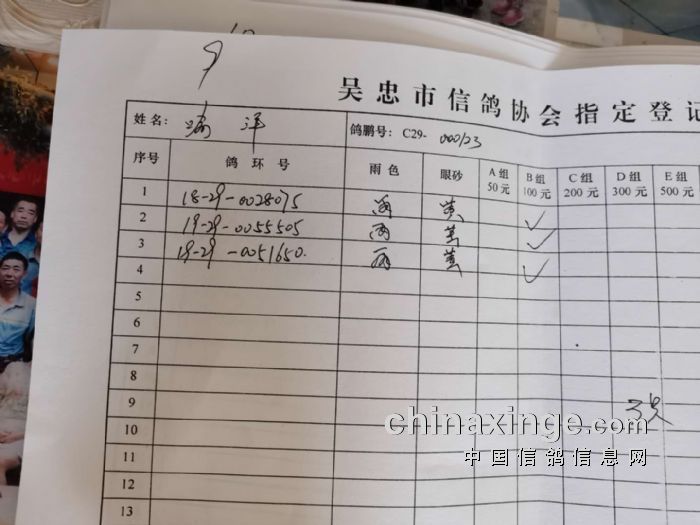 吴忠市信鸽协会指定登记
姓名: 洋 鸽鹏号: C29- 000123
序号 鸽环号 雨色 眼砂 A组 50元 B组 100元 C组 200元 D组 300元 E组 500元
1 18-29-0028075 雨 黄 ✓
2 19-29-0055505 雨 黄 ✓
3 19-29-0051650. 雨 黄 ✓
4
5
6
7
8
9
10
11
12
13
chinaxinge.com
中国信鸽信息网